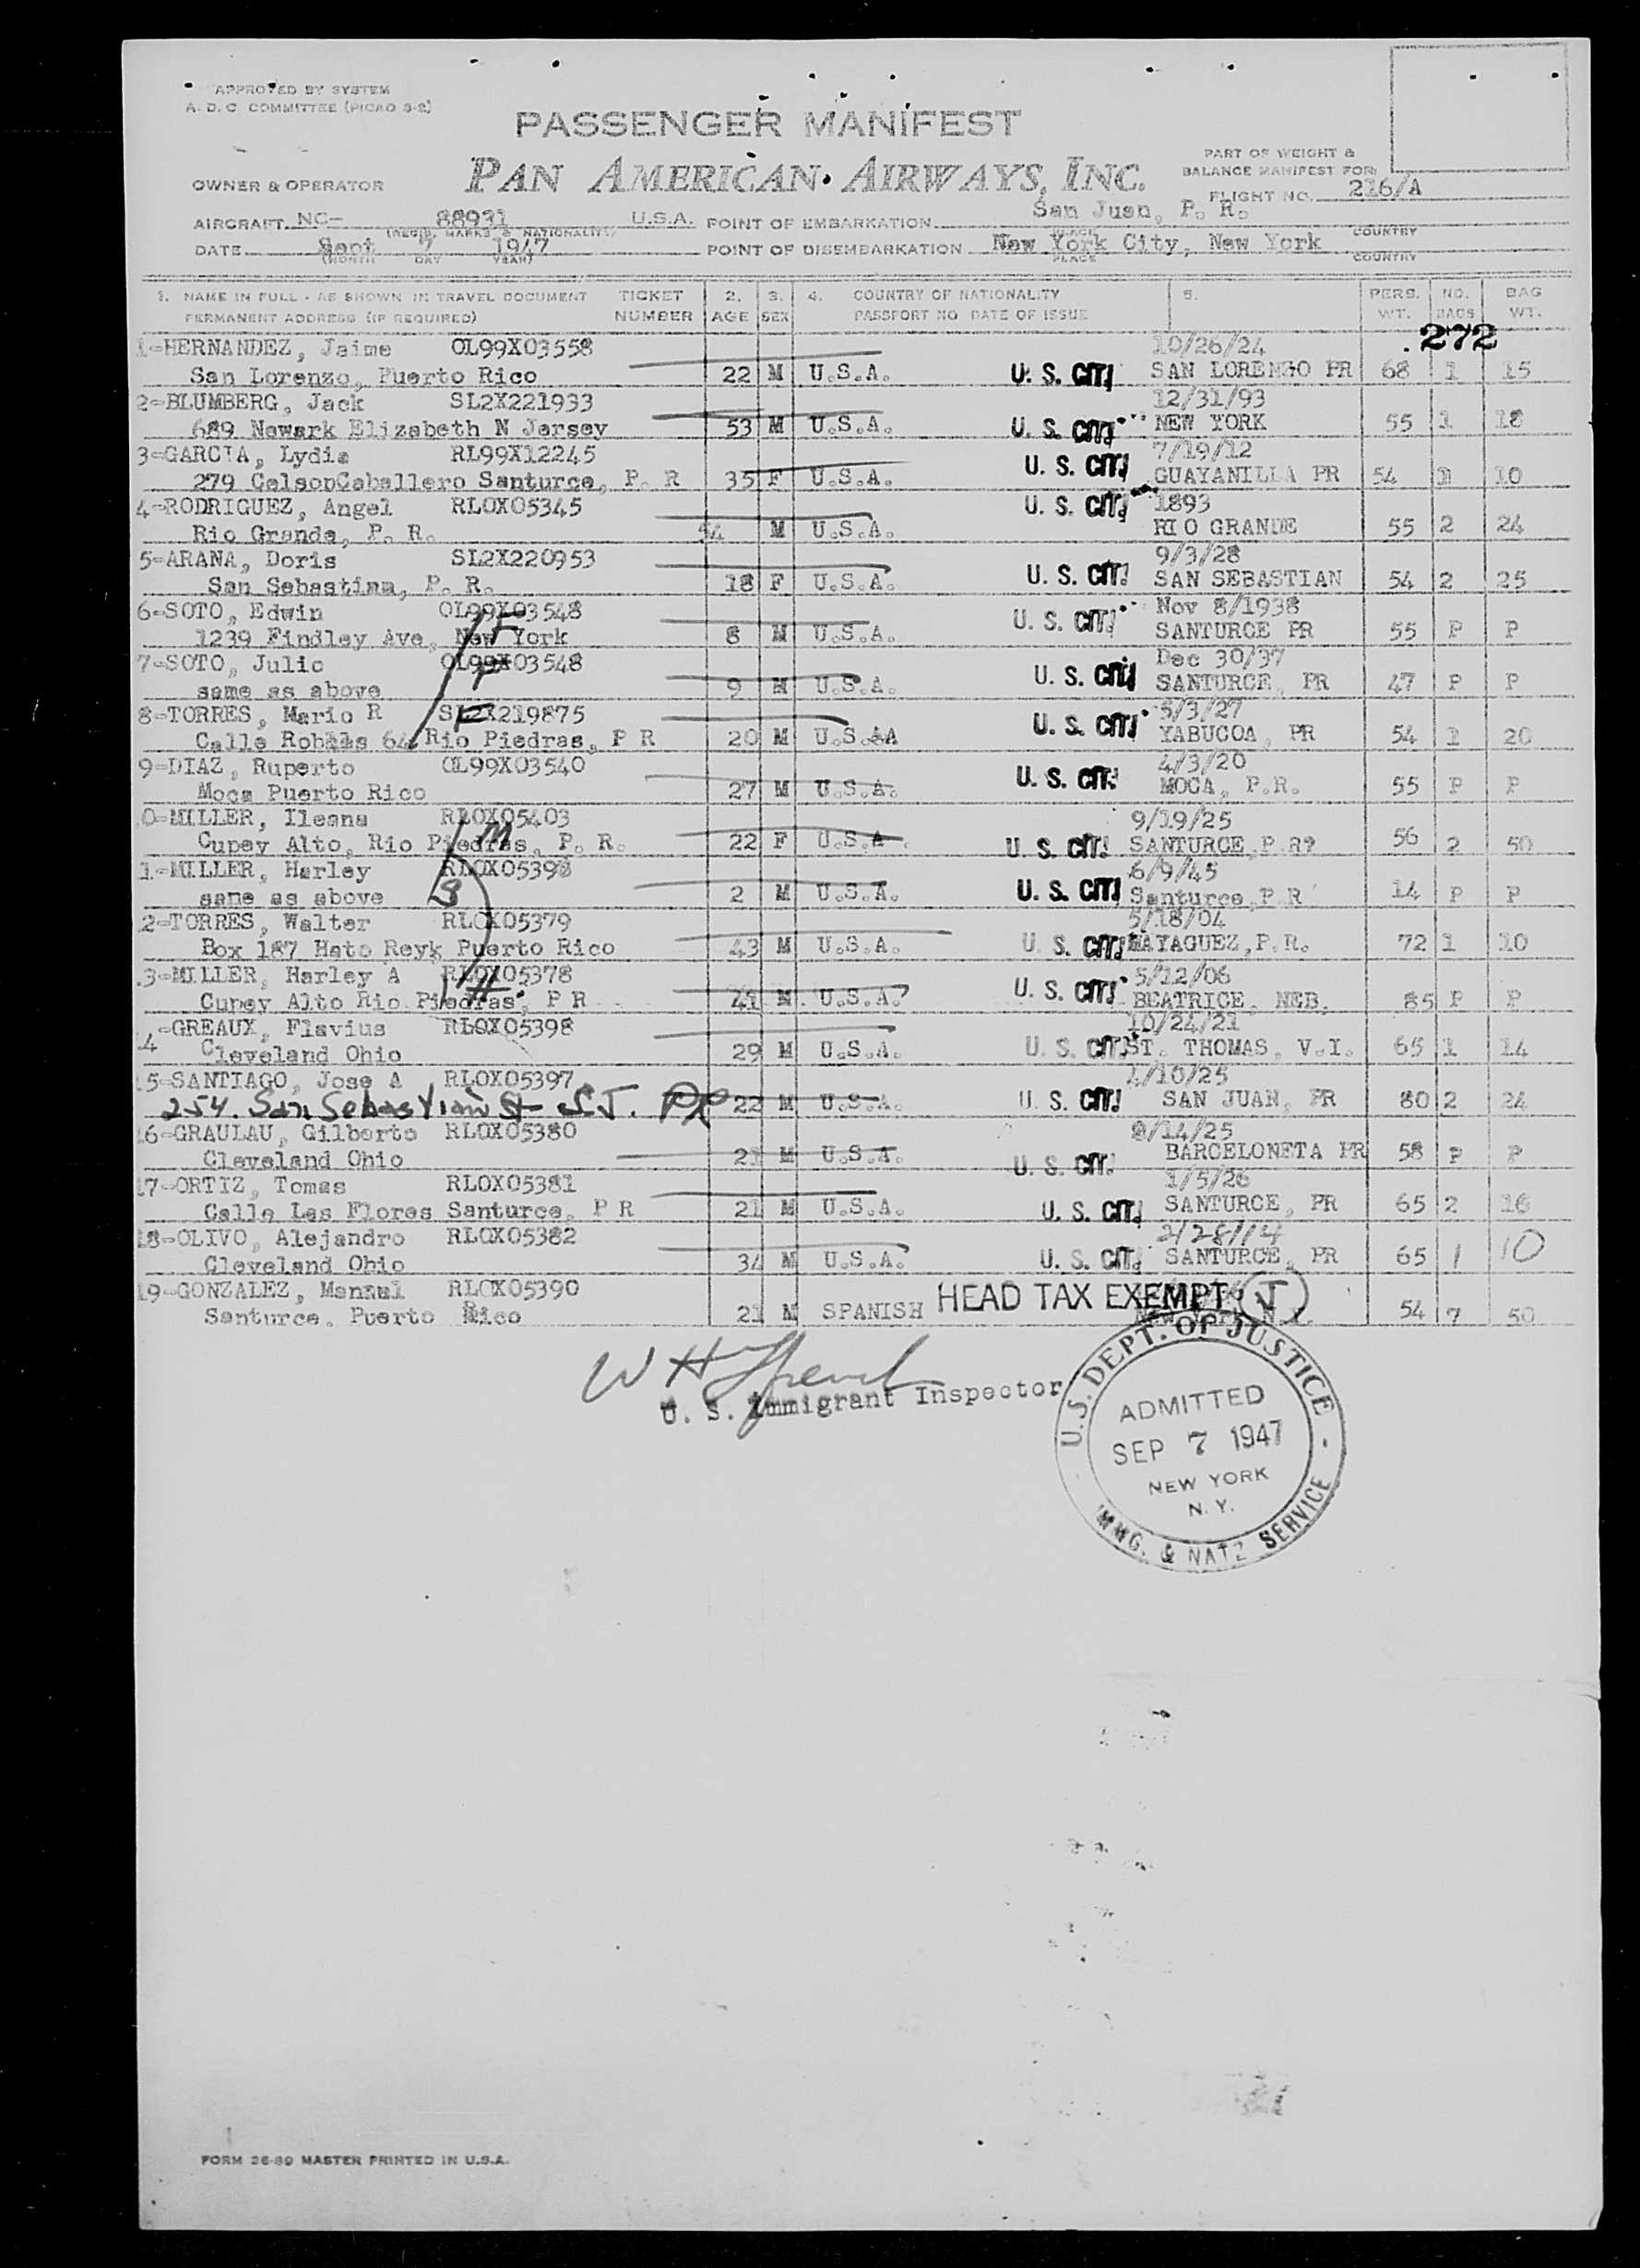 APPROVED BY SYSTEM
A. D. C COMMITTEE (PICAO 9-2)
PASSENGER MANIFEST
PAN AMERICAN AIRWAYS, INC.
PART OF WEIGHT &
BALANCE MANIFEST FOR:
OWNER & OPERATOR
FLIGHT NO. 216/A
AIRCRAFT NC- 88931 U.S.A. POINT OF EMBARKATION San Juan, P. R.
(REGIS. MARKS & NATIONALITY) PLACE COUNTRY
DATE Sept 7 1947 POINT OF DISEMBARKATION New York City, New York
(MONTH DAY YEAR) PLACE COUNTRY
1. NAME IN FULL - AS SHOWN IN TRAVEL DOCUMENT TICKET 2. 3. 4. COUNTRY OF NATIONALITY 5. PERS. NO. BAG
PERMANENT ADDRESS (IF REQUIRED) NUMBER AGE SEX PASSPORT NO DATE OF ISSUE WT. BAGS WT.
272
1-HERNANDEZ, Jaime OL99X03558 10/26/24
San Lorenzo, Puerto Rico 22 M U.S.A. U. S. CIT. SAN LORENGO PR 68 1 15
2-BLUMBERG, Jack SL2X221933 12/31/93
689 Newark Elizabeth N Jersey 53 M U.S.A. U. S. CIT. NEW YORK 55 1 18
3-GARCIA, Lydia RL99X12245 7/19/12
279 CelsonCaballero Santurce, P. R 35 F U.S.A. U. S. CIT. GUAYANILLA PR 54 1 10
4-RODRIGUEZ, Angel RLOX05345 U. S. CIT. 1893
Rio Grande, P. R. 54 M U.S.A. RIO GRANDE 55 2 24
5-ARANA, Doris SL2X220953 9/3/28
San Sebastina, P. R. 18 F U.S.A. U. S. CIT. SAN SEBASTIAN 54 2 25
6-SOTO, Edwin OL99X03548 Nov 8/1938
1239 Findley Ave, New York 8 M U.S.A. U. S. CIT. SANTURCE PR 55 P P
7-SOTO, Julio OL99X03548 Dec 30/37
same as above 9 M U.S.A. U. S. CIT. SANTURCE, PR 47 P P
8-TORRES, Mario R SL2X219875 5/3/27
Calle Robles 64 Rio Piedras, P R 20 M U.S.AA U. S. CIT. YABUCOA, PR 54 1 20
9-DIAZ, Ruperto OL99X03540 4/3/20
Moca Puerto Rico 27 M U.S.A. U. S. CIT. MOCA, P.R. 55 P P
0-MILLER, Ileana RLOX05403 9/19/25
Cupey Alto, Rio Piedras, P. R. 22 F U.S.A. U. S. CIT. SANTURCE,P.R? 56 2 50
1-MILLER, Harley 6/9/45
sane as above 2 M U.S.A. U. S. CIT. Santurce,P R 14 P P
2-TORRES, Walter RLOX05379 5/18/04
Box 187 Hato Reyk Puerto Rico 43 M U.S.A. U. S. CIT. MAYAGUEZ,P.R. 72 1 10
.3-MILLER, Harley A RLOX05378 5/12/06
Cupey Alto Rio Piedras, P R 41 M U.S.A. U. S. CIT. BEATRICE, NEB. 85 P P
.4-GREAUX, Flavius RLOX05398 10/24/21
Cleveland Ohio 29 M U.S.A. U. S. CIT. ST. THOMAS, V.I. 65 1 14
.5-SANTIAGO, Jose A RLOX05397 /10/25
254. San Sebastian St S.J. PR 22 M U.S.A. U. S. CIT. SAN JUAN, PR 80 2 24
16-GRAULAU, Gilberto RLOX05380 /14/25
Cleveland Ohio 21 M U.S.A. U. S. CIT. BARCELONETA PR 58 P P
17-ORTIZ, Tomas RLOX05381 1/5/26
Calle Las Flores Santurce, P R 21 M U.S.A. U. S. CIT. SANTURCE, PR 65 2 16
18-OLIVO, Alejandro RLOX05382 2/28/14
Cleveland Ohio 34 M U.S.A. U. S. CIT. SANTURCE, PR 65 1 10
19-GONZALEZ, Manuel RLOX05390 HEAD TAX EXEMPT J
Santurce, Puerto Rico 21 M SPANISH New York N.Y. 54 7 50
W H
U. S. Immigrant Inspector
U.S. DEPT. OF JUSTICE
ADMITTED
SEP 7 1947
NEW YORK
N. Y.
IMMG. & NATZ SERVICE
FORM 26-89 MASTER PRINTED IN U.S.A.